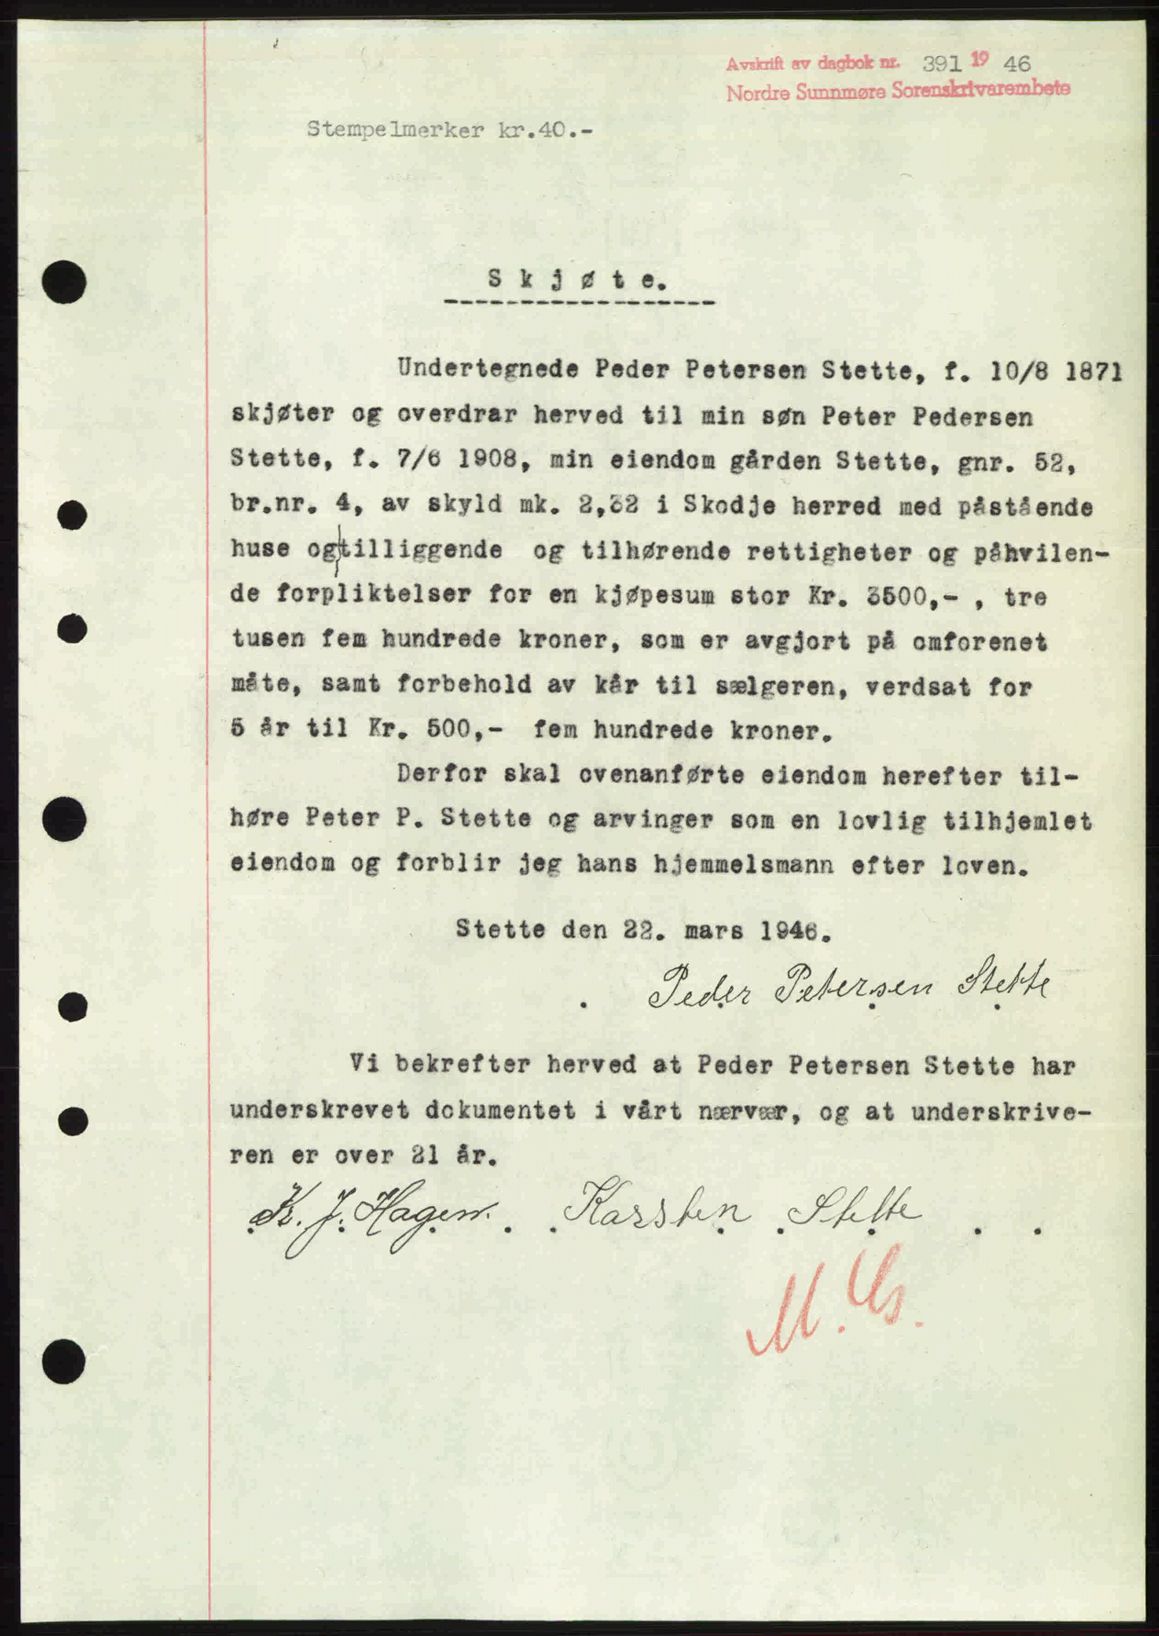 Avskrift av dagbok nr. 391 19 46
Nordre Sunnmøre Sorenskrivarembete
Stempelmerker kr.40.-
Skjøte.
Undertegnede Peder Petersen Stette, f. 10/8 1871
skjøter og overdrar herved til min søn Peter Pedersen
Stette, f. 7/6 1908, min eiendom gården Stette, gnr. 52,
br.nr. 4, av skyld mk. 2,32 i Skodje herred med påstående
huse og tilliggende og tilhørende rettigheter og påhvilen-
de forpliktelser for en kjøpesum stor Kr. 3500,- , tre
tusen fem hundrede kroner, som er avgjort på omforenet
måte, samt forbehold av kår til sælgeren, verdsat for
5 år til Kr. 500,- fem hundrede kroner.
Derfor skal ovenanførte eiendom herefter til-
høre Peter P. Stette og arvinger som en lovlig tilhjemlet
eiendom og forblir jeg hans hjemmelsmann efter loven.
Stette den 22. mars 1946.
Peder Petersen Stette
Vi bekrefter herved at Peder Petersen Stette har
underskrevet dokumentet i vårt nærvær, og at underskrive-
ren er over 21 år.
K. J. Hagen. Karsten Stette